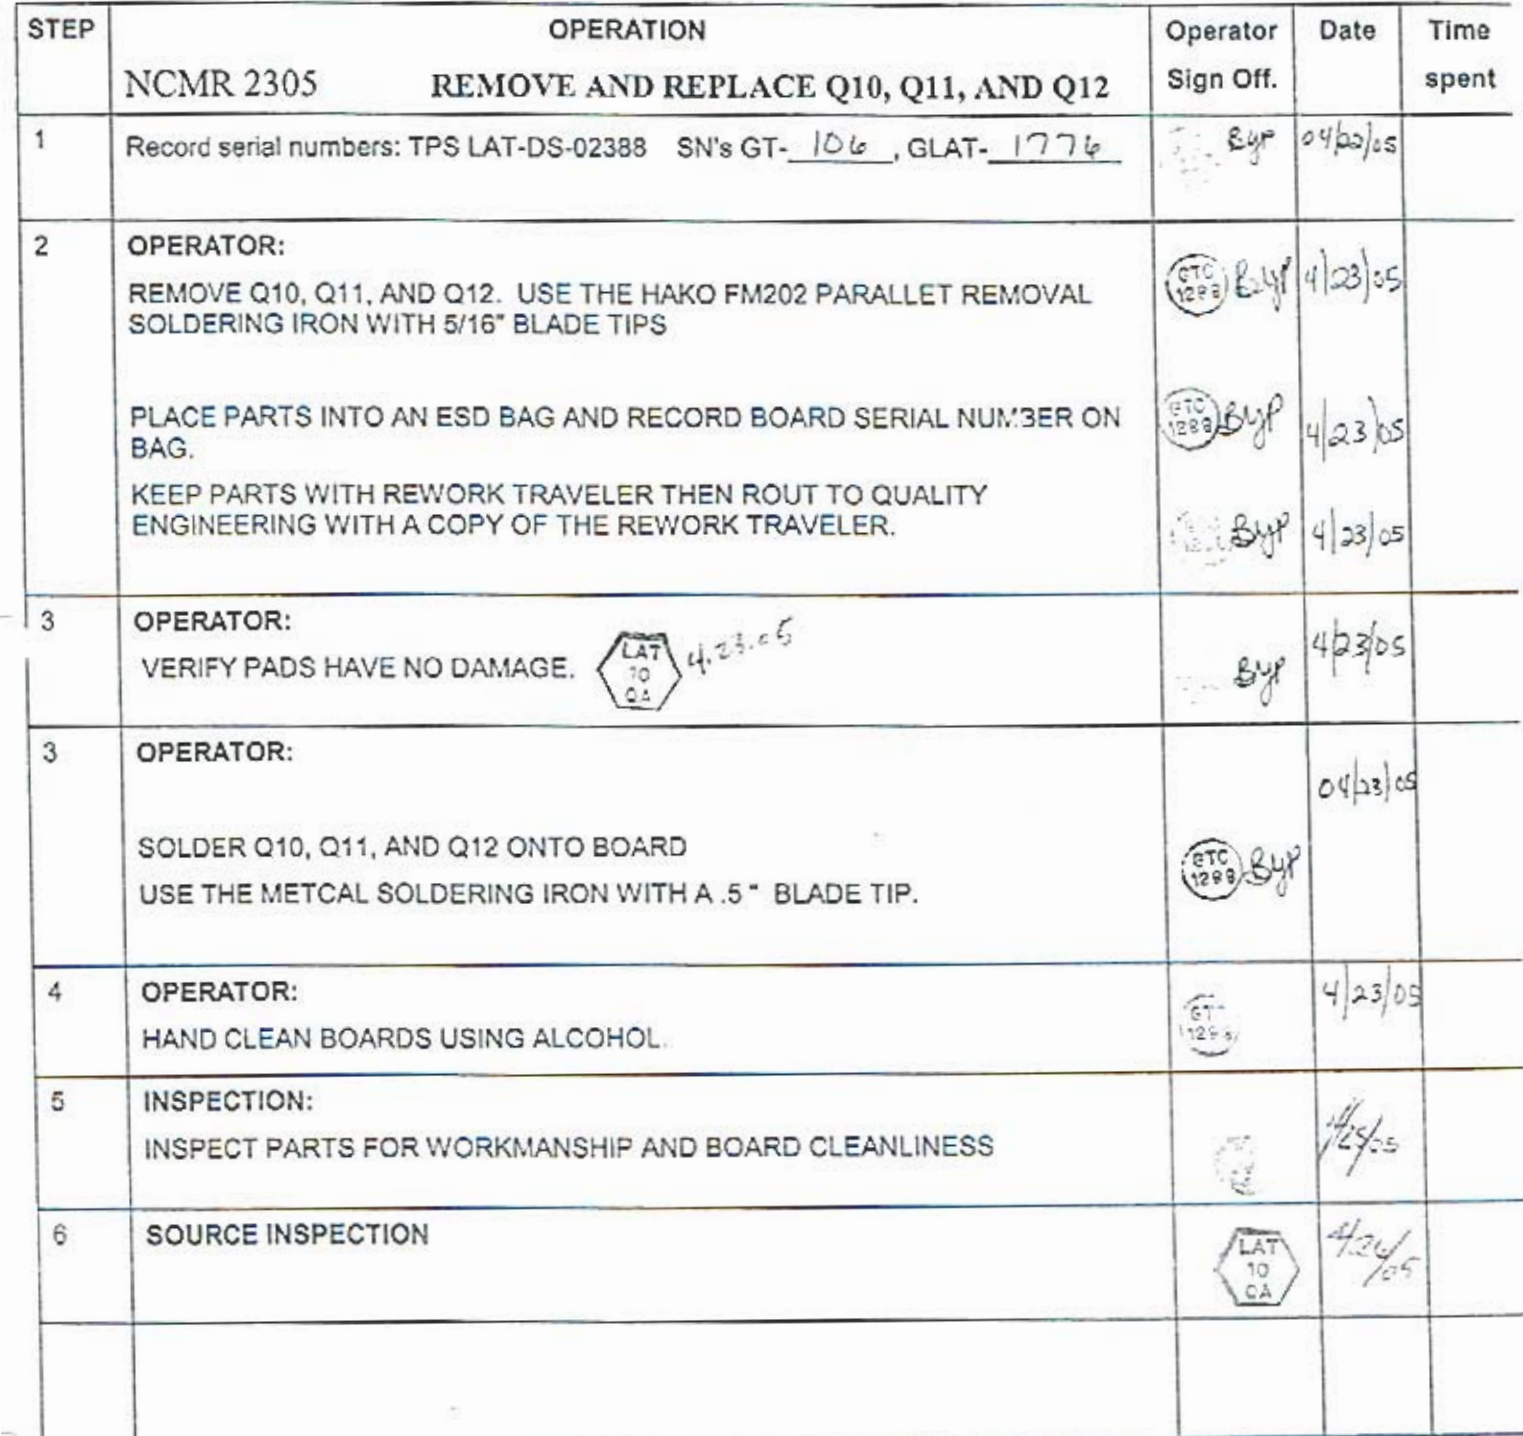 STEP OPERATION Operator Date Time
NCMR 2305 REMOVE AND REPLACE Q10, Q11, AND Q12 Sign Off. spent
1 Record serial numbers: TPS LAT-DS-02388 SN's GT- 106 , GLAT- 1776 Byp
2 OPERATOR:
REMOVE Q10, Q11, AND Q12. USE THE HAKO FM202 PARALLET REMOVAL GTC Byp 4/23/05
SOLDERING IRON WITH 5/16" BLADE TIPS 1298
PLACE PARTS INTO AN ESD BAG AND RECORD BOARD SERIAL NUMBER ON GTC Byp 4/23/05
BAG. 1298
KEEP PARTS WITH REWORK TRAVELER THEN ROUT TO QUALITY
ENGINEERING WITH A COPY OF THE REWORK TRAVELER. Byp 4/23/05
3 OPERATOR:
VERIFY PADS HAVE NO DAMAGE. LAT 4.23.05 Byp 4/23/05
10
QA
3 OPERATOR:
04/23/05
SOLDER Q10, Q11, AND Q12 ONTO BOARD GTC Byp
USE THE METCAL SOLDERING IRON WITH A .5 " BLADE TIP. 1298
4 OPERATOR: 4/23/05
HAND CLEAN BOARDS USING ALCOHOL. 1298
5 INSPECTION:
INSPECT PARTS FOR WORKMANSHIP AND BOARD CLEANLINESS
6 SOURCE INSPECTION LAT 4/26/05
10
QA